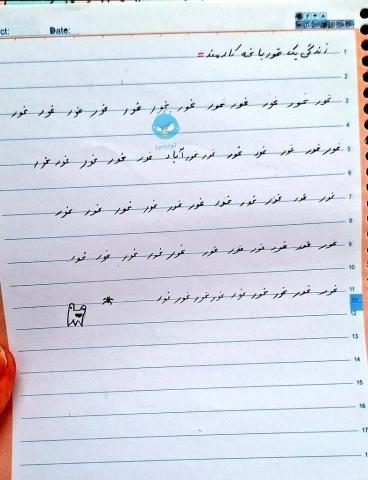 Date:
زندگی یک غورباغه کارمند =
غور غور غور غور غور غور غور غور غور غور غور غور
غور غور غور غور غور غور غور آباد غور غور غور غور غور
غور غور غور غور غور غور غور غور غور غور غور
غور غور غور غور غور غور غور غور غور غور غور
غور غور غور غور غور غور غور غور غور